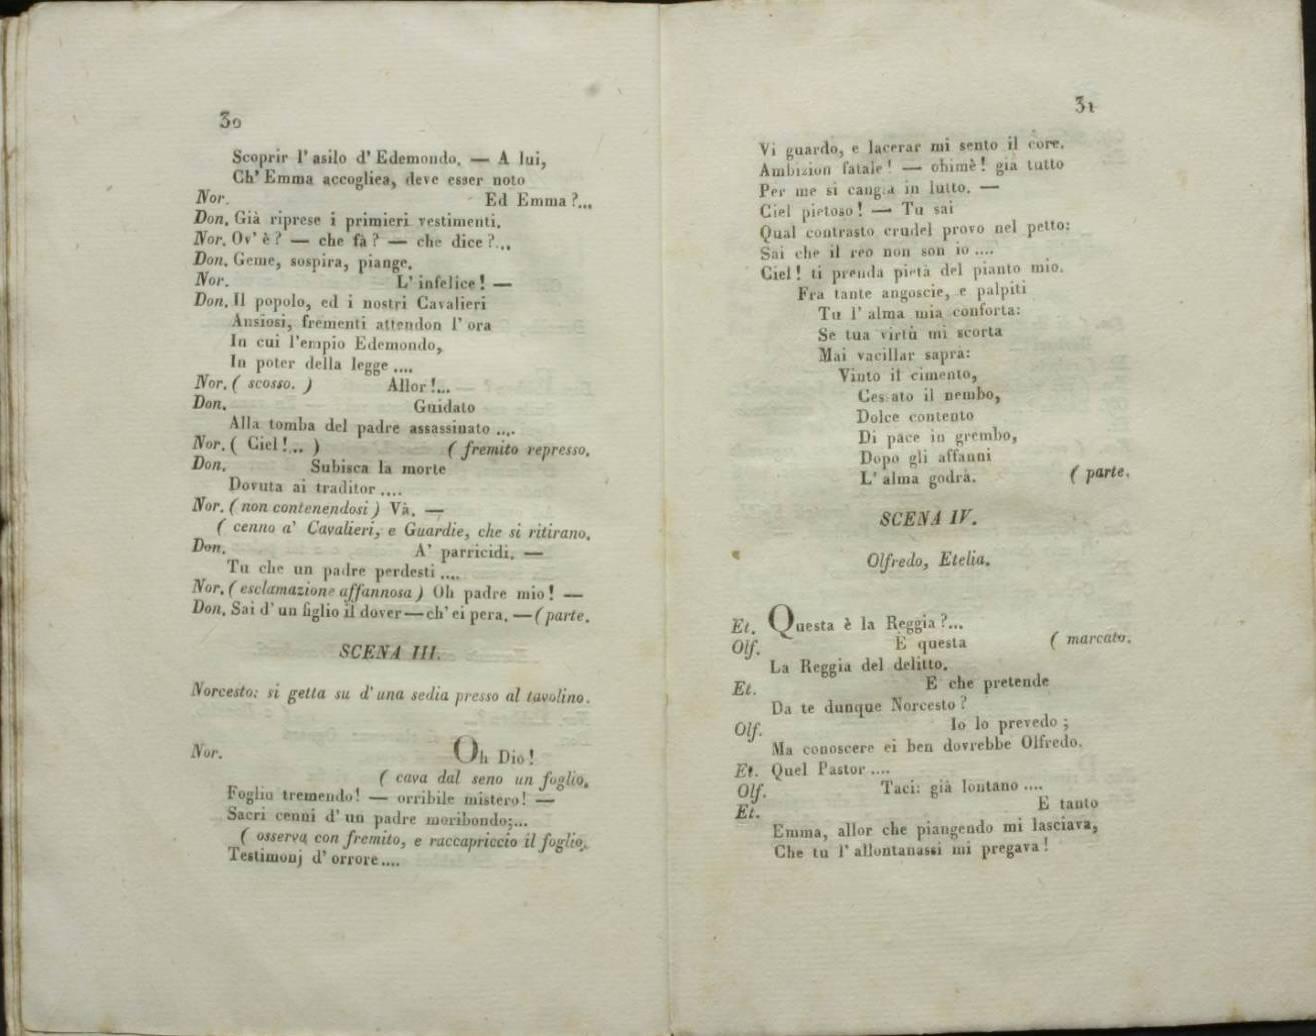 30
Scoprir l' asilo d' Edemondo. — A lui,
Ch' Emma accogliea, deve esser noto
Nor. Ed Emma?...
Don. Già riprese i primieri vestimenti.
Nor. Ov' è? — che fà? — che dice?...
Don. Geme, sospira, piange.
Nor. L' infelice! —
Don. Il popolo, ed i nostri Cavalieri
Ansiosi, frementi attendon l' ora
In cui l'empio Edemondo,
In poter della legge ....
Nor. ( scosso. ) Allor!...
Don. Guidato
Alla tomba del padre assassinato ....
Nor. ( Ciel!... ) ( fremito represso.
Don. Subisca la morte
Dovuta ai traditor ....
Nor. ( non contenendosi ) Và. —
( cenno a' Cavalieri, e Guardie, che si ritirano.
Don. A' parricidi. —
Tu che un padre perdesti ....
Nor. ( esclamazione affannosa ) Oh padre mio! —
Don. Sai d' un figlio il dover — ch' ei pera. — ( parte.
SCENA III.
Norcesto: si getta su d' una sedia presso al tavolino.
Nor. Oh Dio!
( cava dal seno un foglio.
Foglio tremendo! — orribile mistero! —
Sacri cenni d' un padre moribondo;...
( osserva con fremito, e raccapriccio il foglio.
Testimonj d' orrore ....
31
Vi guardo, e lacerar mi sento il core.
Ambizion fatale! — ohimè! già tutto
Per me si cangia in lutto. —
Ciel pietoso! — Tu sai
Qual contrasto crudel provo nel petto:
Sai che il reo non son io ....
Ciel! ti prenda pietà del pianto mio.
Fra tante angoscie, e palpiti
Tu l' alma mia conforta:
Se tua virtù mi scorta
Mai vacillar saprà:
Vinto il cimento,
Cessato il nembo,
Dolce contento
Di pace in grembo,
Dopo gli affanni
L' alma godrà. ( parte.
SCENA IV.
Olfredo, Etelia.
Et. Questa è la Reggia?...
Olf. È questa ( marcato.
La Reggia del delitto.
Et. E che pretende
Da te dunque Norcesto?
Olf. Io lo prevedo;
Ma conoscere ei ben dovrebbe Olfredo.
Et. Quel Pastor ....
Olf. Taci: già lontano ....
Et. E tanto
Emma, allor che piangendo mi lasciava,
Che tu l' allontanassi mi pregava!